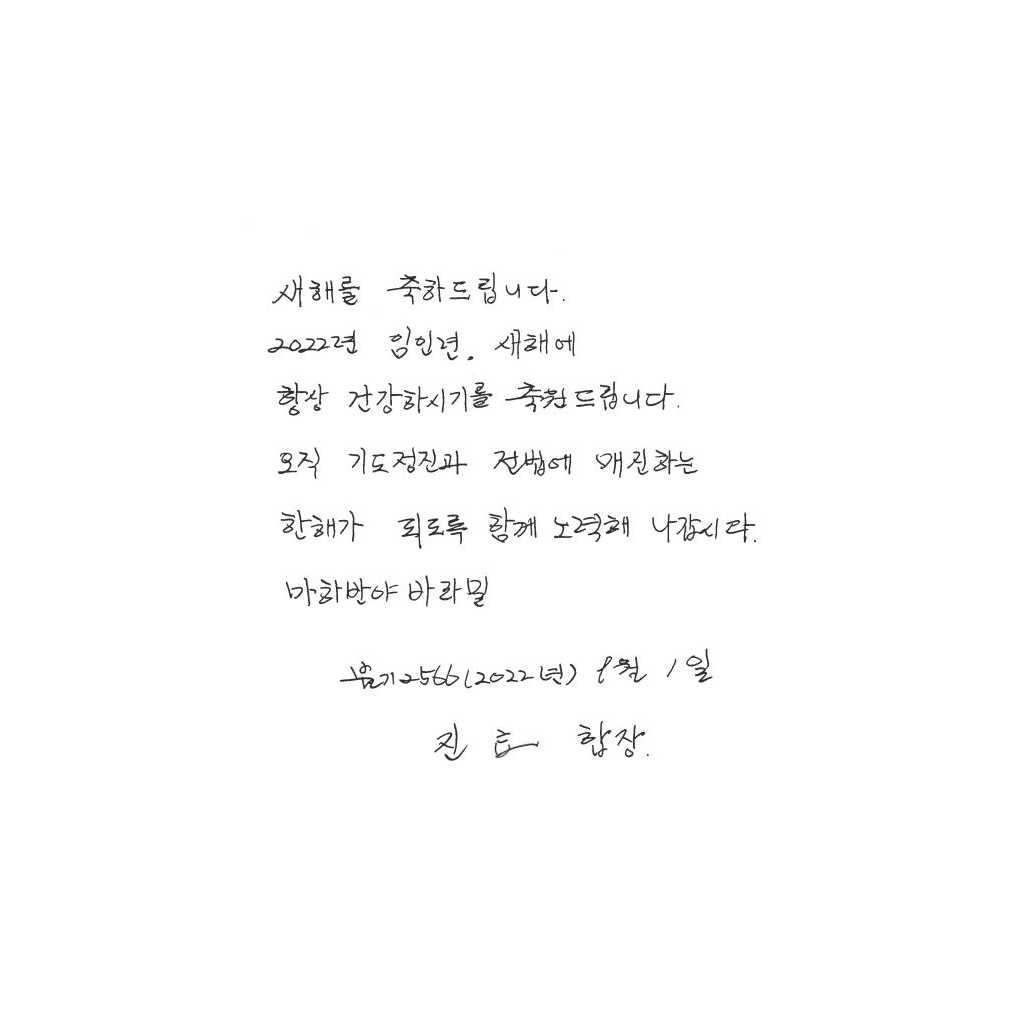 새해를 축하드립니다.
2022년 임인년. 새해에
항상 건강하시기를 축원드립니다.
오직 기도정진과 전법에 매진하는
한해가 되도록 함께 노력해 나갑시다.
마하반야바라밀
불기2566(2022년) 1월 1일
진 합장.